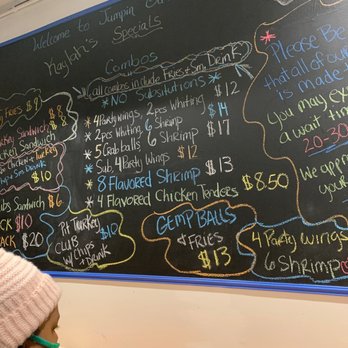 Welcome to Jumpin
Kaylah's Specials
Combos
(all combos include Fries + Sm Drink)
*NO Substitutions*
* 4 Party Wings, 2pcs Whiting $12
* 2pcs Whiting 6 Shrimp $14
* 5 Crab balls 6 Shrimp $17
* Sub, 4 Party Wings $12
* 8 Flavored Shrimp $13
* 4 Flavored Chicken Tenders $8.50
Fries $9
Sandwich $8
Sandwich $8
$10
Sandwich $6
$10
$20
Pit Turkey $10
CLUB
w/ CHIPS
+ Drink
GEMP BALLS
& FRIES
$13
4 Party Wings
6 Shrimp
* Please Be
that all of our
is made
You may ex
a wait tim
20-30
We appr
your